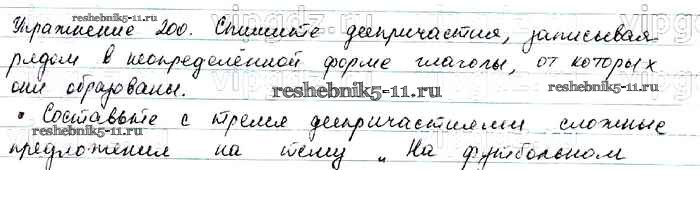 Упражнение 200. Спишите деепричастия, записывая
рядом в неопределённой форме глаголы, от которых
они образованы.
• Составьте с тремя деепричастиями сложные
предложения на тему „На футбольном
reshebnik5-11.ru
reshebnik5-11.ru
reshebnik5-11.ru
reshebnik5-11.ru
vipgdz